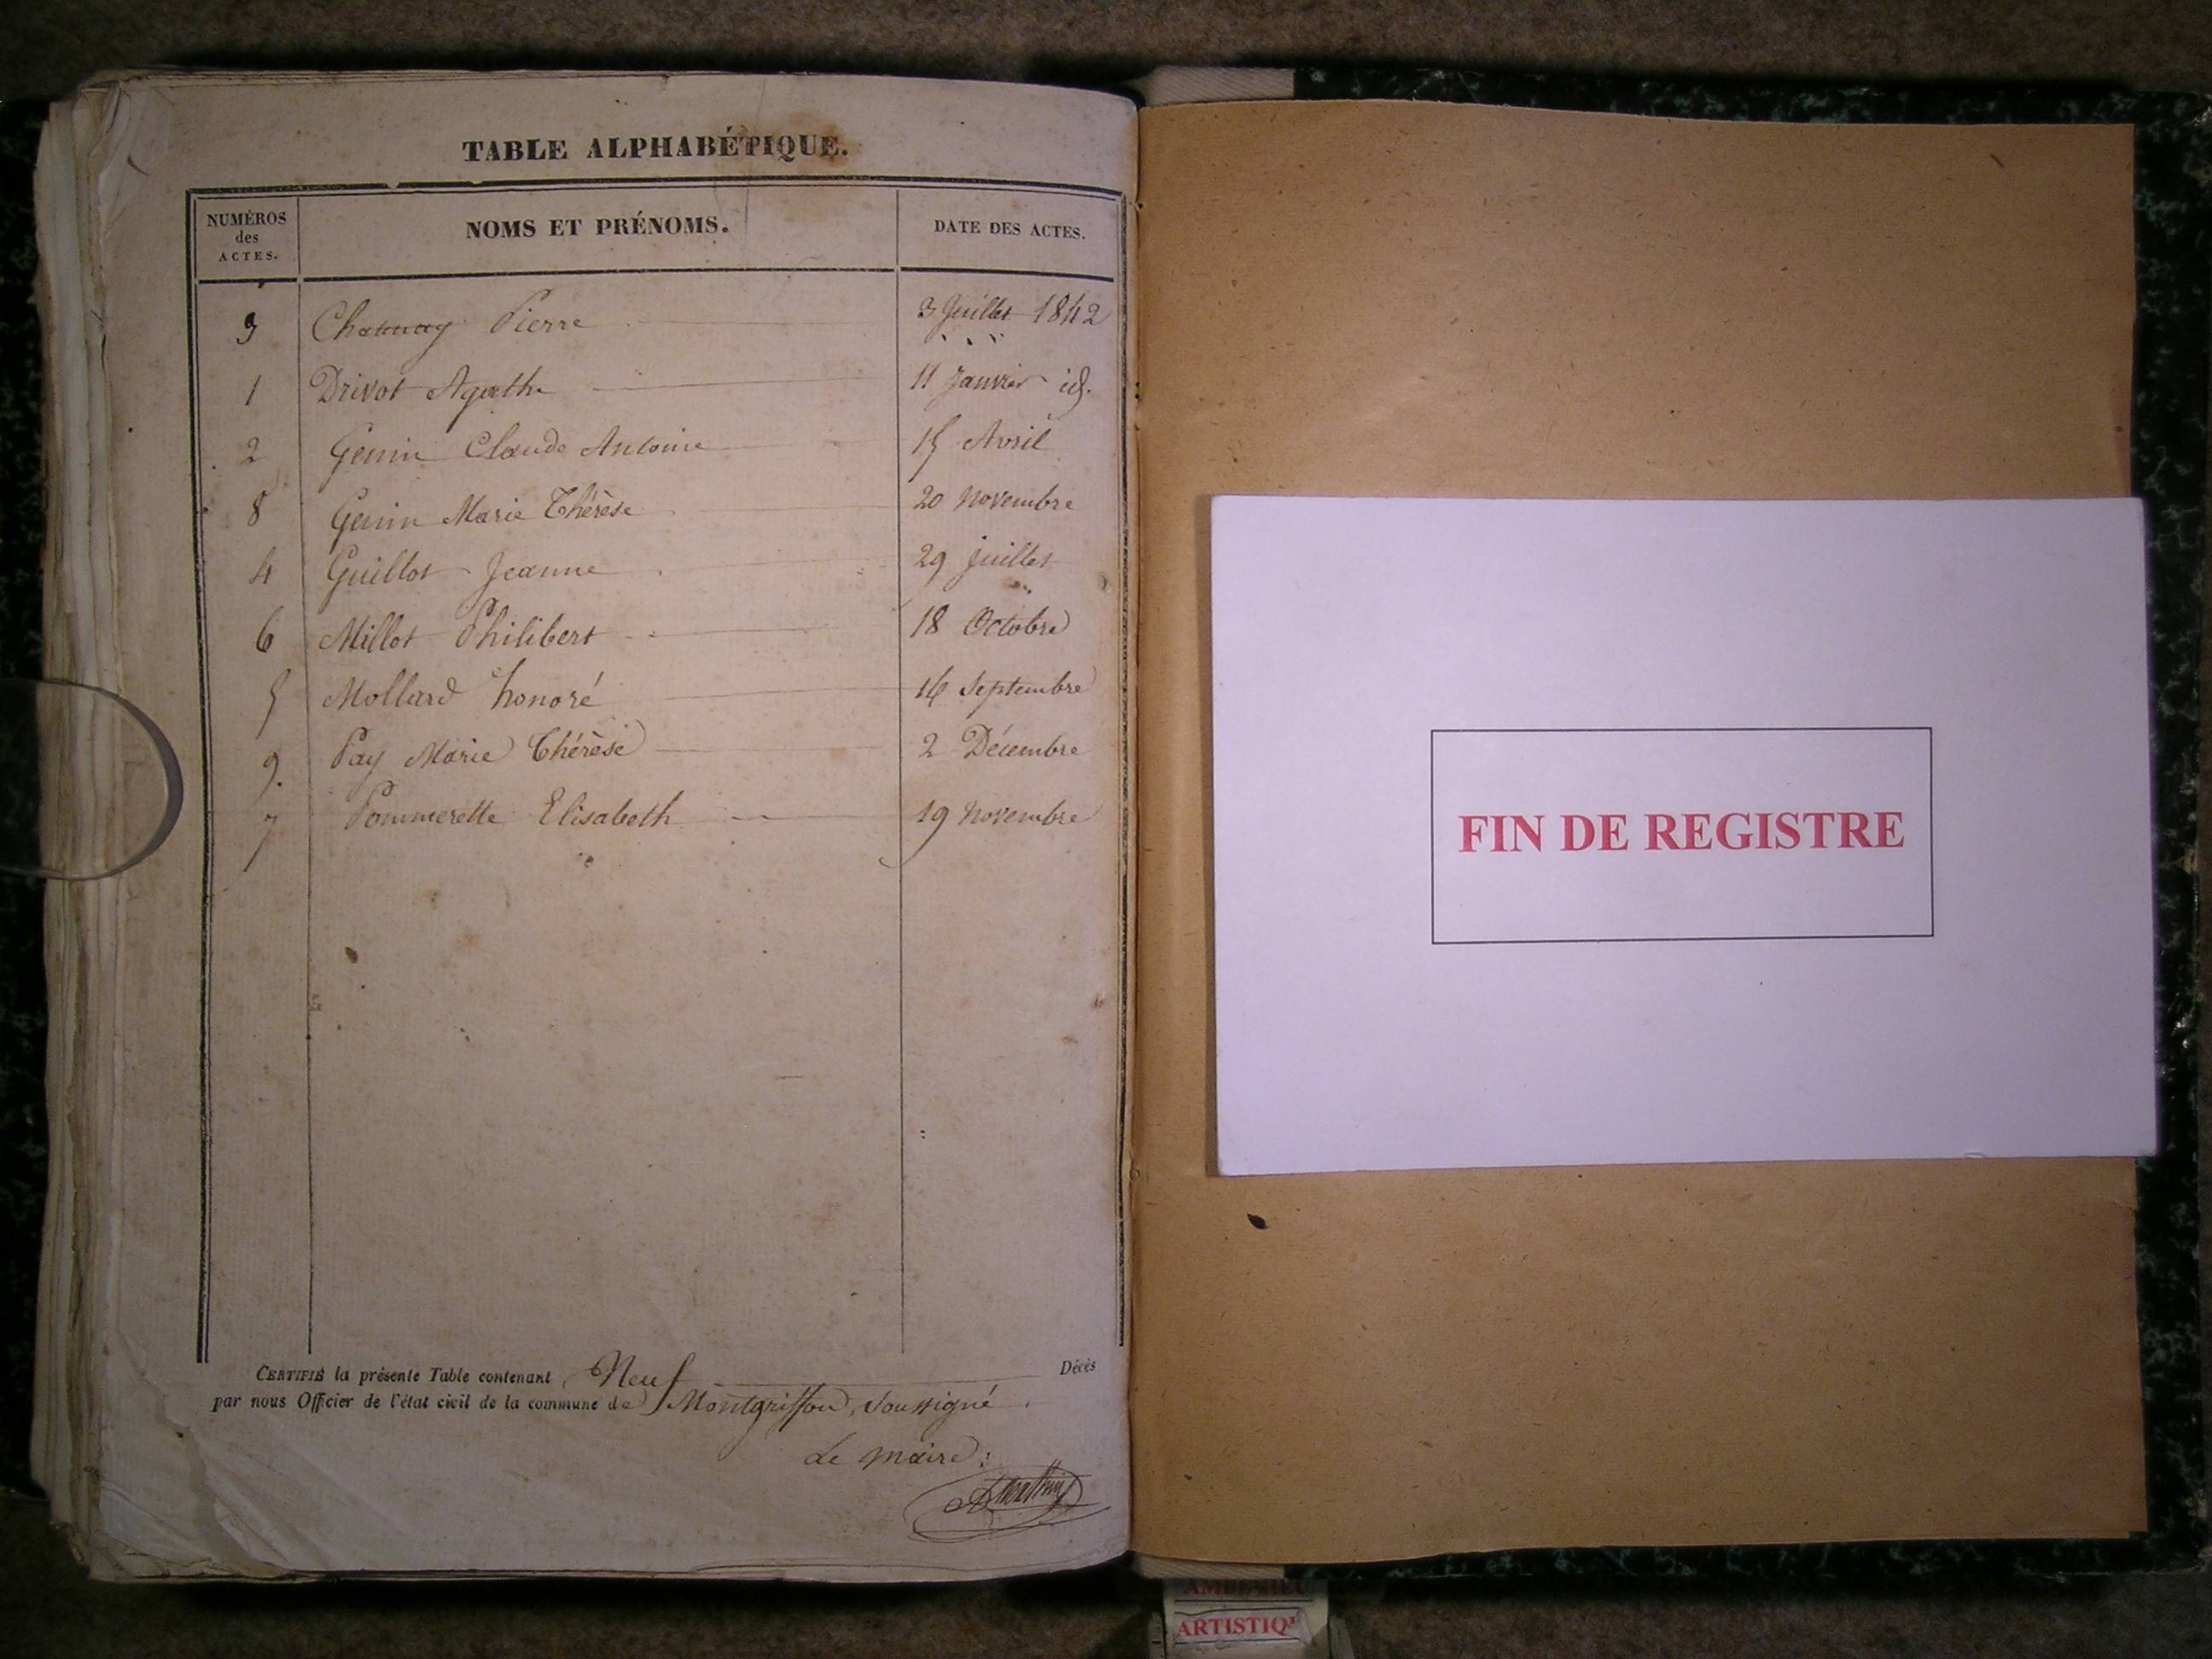 TABLE ALPHABÉTIQUE.
NUMÉROS des ACTES. NOMS ET PRÉNOMS. DATE DES ACTES.
3 Pierre 3 Juillet 1842
1 Drivot Agathe 11 Janvier id.
2 Genin Claude Antoine 15 Avril
8 Genin Marie Thérèse 20 Novembre
4 Guillot Jeanne 29 Juillet
6 Millot Philibert 18 Octobre
5 Mollard honoré 16 Septembre
9. Pay Marie Thérèse 2 Décembre
7 Pommerette Elisabeth 19 Novembre
CERTIFIÉ la présente Table contenant Neuf Décès
par nous Officier de l'état civil de la commune de Montgriffon, soussigné.
Le maire:
FIN DE REGISTRE
ARTISTIQ